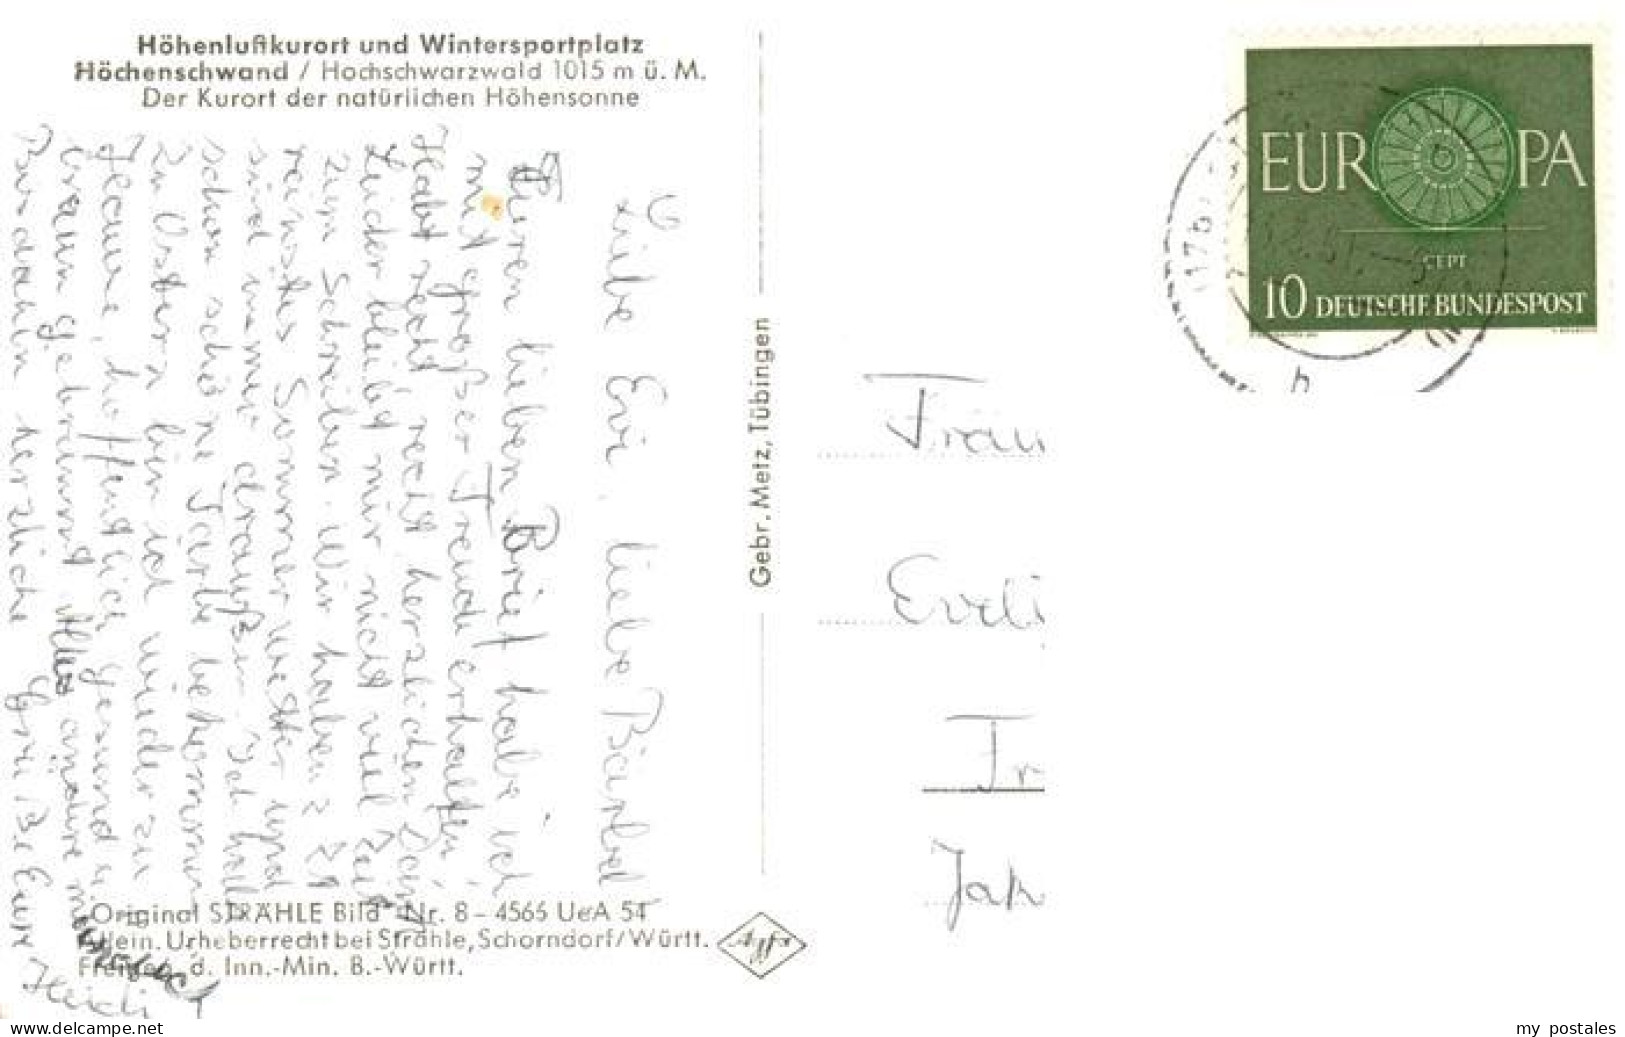 Höhenluftkurort und Wintersportplatz
Höchenschwand / Hochschwarzwald 1015 m ü. M.
Der Kurort der natürlichen Höhensonne
Liebe Evi, liebe Bärbel
Euren lieben Brief habe ich
mit großer Freude erhalten
Habt recht recht herzlichen Dank
Leider bleibt mir nicht viel Zeit
zum Schreiben. Wir haben z Zt
reinstes Sommerwetter und
sind immer draußen. Ich hab
schon schöne Farbe bekommen
Zu Ostern bin ich wieder zu
Hause, hoffentlich gesund u.
braun gebrannt. Alles andere mündlich
Bis dahin herzliche Grüße Eure
Heidi
Original STRÄHLE Bild Nr. 8 – 4566 UeA 54
Allein. Urheberrecht bei Strähle, Schorndorf/Württ.
Freigeg. d. Inn.-Min. B.-Württ.
Gebr. Metz, Tübingen
Agfa
EUROPA
CEPT
10 DEUTSCHE BUNDESPOST
h
Frau
Eveli
Jah
delcampe.net
my postales